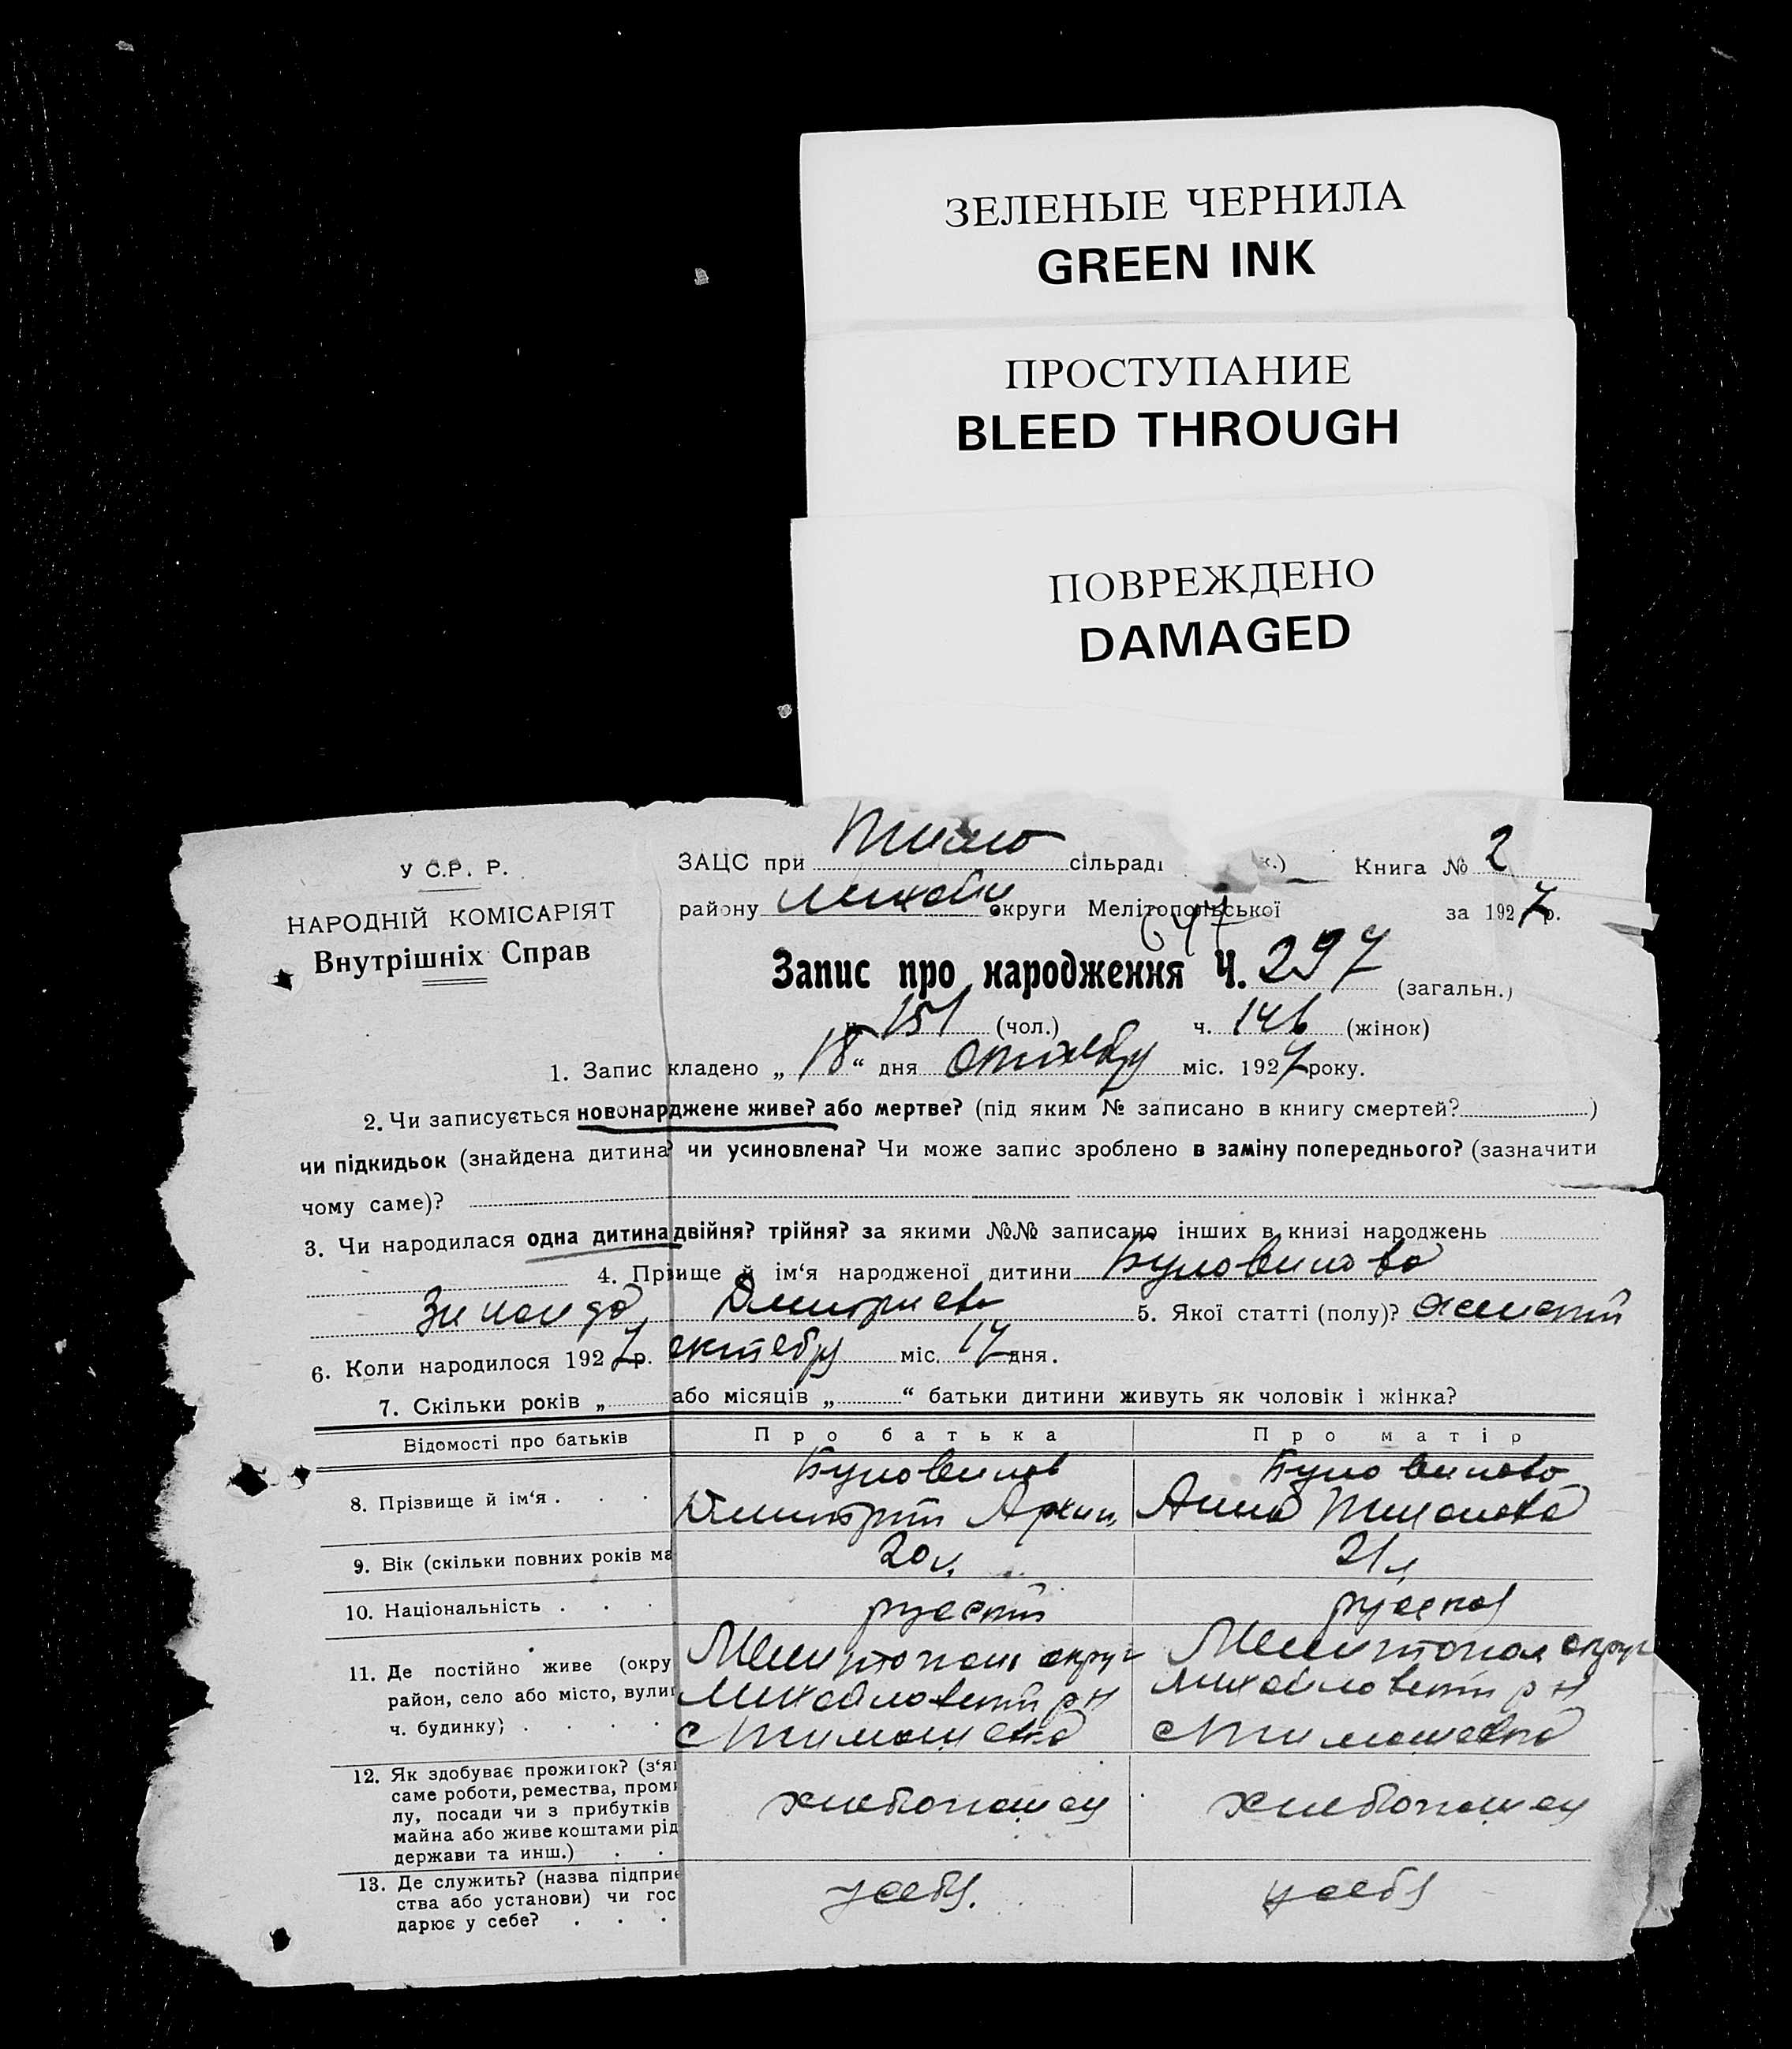 ЗЕЛЕНЫЕ ЧЕРНИЛА
GREEN INK
ПРОСТУПАНИЕ
BLEED THROUGH
ПОВРЕЖДЕНО
DAMAGED
У С.Р. Р.
НАРОДНІЙ КОМІСАРІЯТ
Внутрішніх Справ
ЗАЦС при Тимо сільраді к.) Книга № 2
району михайл округи Мелітопольської за 1927 р.
Запис про народження Ч. 297 (загальн.)
151 (чол.) ч. 146 (жінок)
1. Запис кладено „ 18 “ дня октября міс. 1927 року.
2. Чи записується новонарджене живе? або мертве? (під яким № записано в книгу смертей? )
чи підкидьок (знайдена дитина? чи усиновлена? Чи може запис зроблено в заміну попереднього? (зазначити
чому саме)?
3. Чи народилася одна дитина двійня? трійня? за якими №№ записано інших в книзі народжень
4. Прівище й ім‘я народженої дитини Буловинова
Зинаида Дмитриева 5. Якої статті (полу)? женский
6. Коли народилося 1927 р. октебру міс. 17 дня.
7. Скільки років „ або місяців „ “ батьки дитини живуть як чоловік і жінка?
Відомості про батьків Про батька Про матір
8. Прізвище й ім‘я . . . Буловинов Буловинова
Дмитрий Архип Анна Тихонова
9. Вік (скільки повних років ма 20 л. 21 л.
10. Національність . . . русский русская
11. Де постійно живе (окру Мелитопол округ Мелитопол округ
район, село або місто, вулиц Михайловский р н Михайловский р н
ч. будинку) . . . . с Тимошевка с Тимошевка
12. Як здобуває прожиток? (з‘я
саме роботи, ремества, пром
лу, посади чи з прибутків хлебопашец хлебопашец
майна або живе коштами рід
держави та инш.) . .
13. Де служить? (назва підприє
ства або установи) чи гос у себя. у себя
дарює у себе? . . .